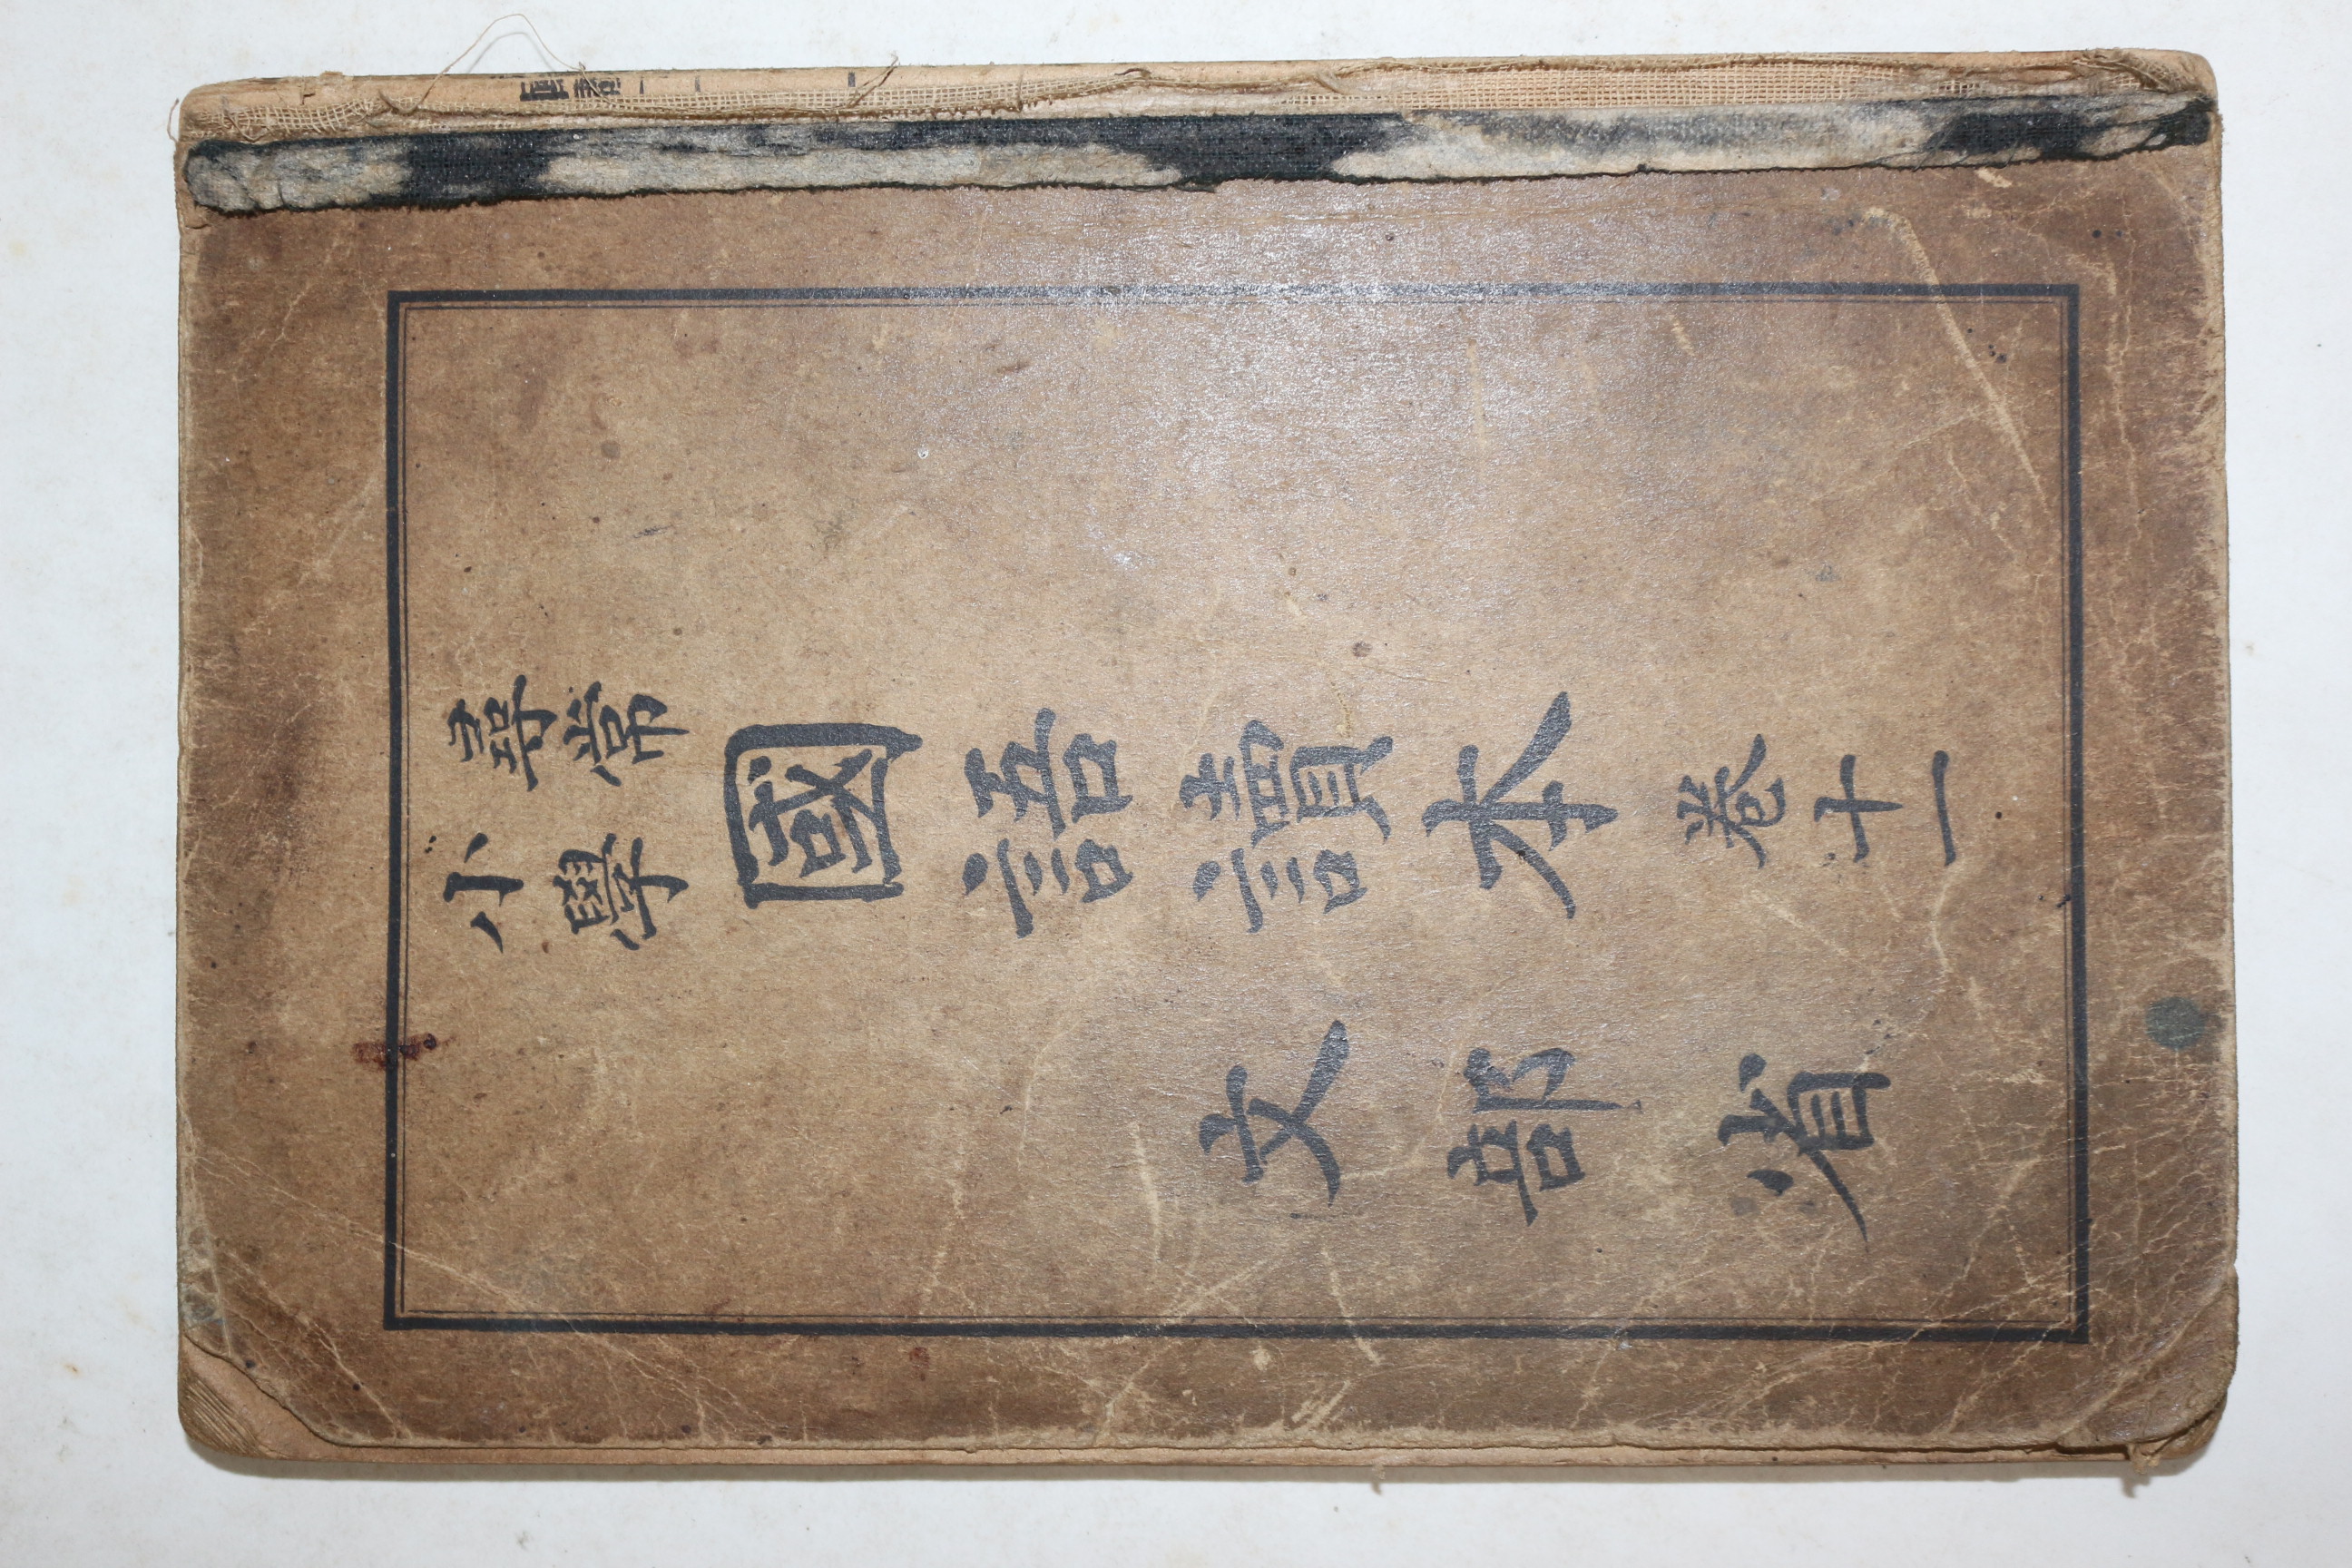 尋常
小學
國語讀本
卷十一
文部省